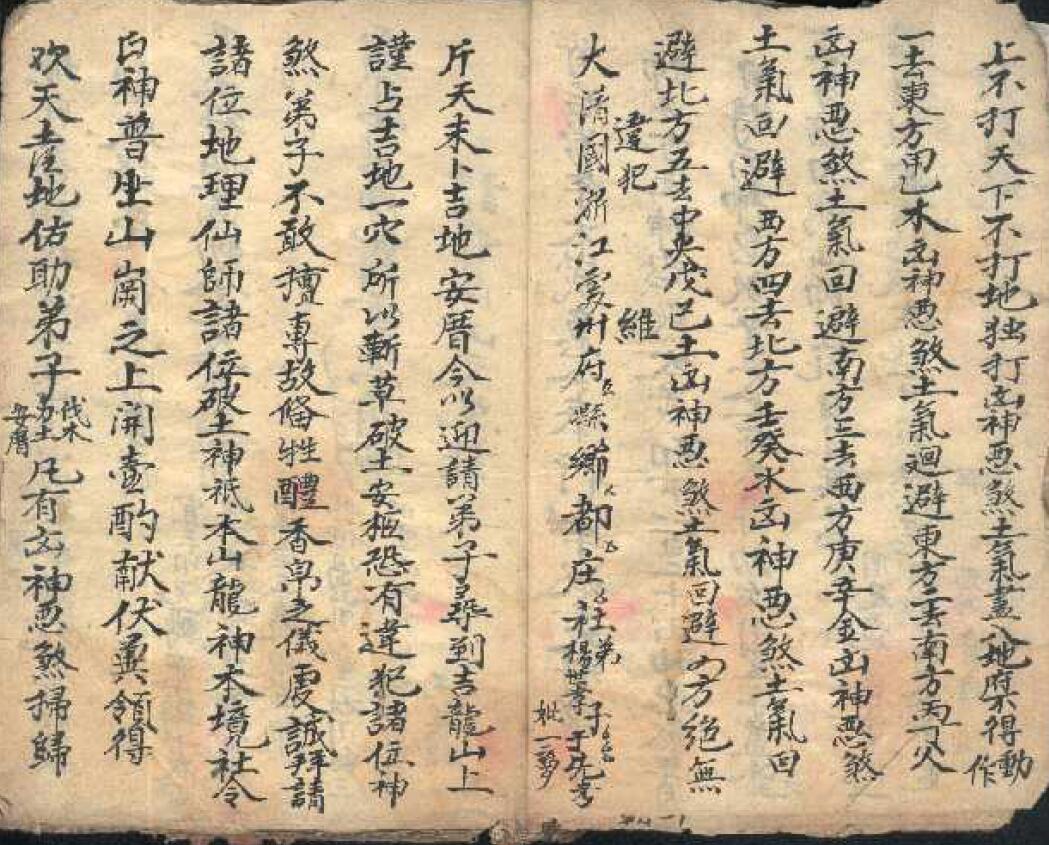 上不打天下不打地独打凶神恶煞土氣盡入地府不得動作
一去東方甲乙木凶神恶煞土氣廻避東方二去南方丙丁火
凶神恶煞土氣回避南方三去西方庚辛金凶神恶煞
土氣回避西方四去北方壬癸水凶神恶煞土氣回
避北方五去中央戊己土凶神恶煞土氣回避四方絶無
違犯 維
大清國浙江處州府ㄙ縣ㄙ鄉ㄙ都ㄙ庄ㄙ社弟子
楊世等ㄙㄙ于先考
妣一夢
斤天未卜吉地安厝今以迎請弟子尋到吉龍山上
謹占吉地一穴所以斬草破土安柩恐有違犯諸位神
煞弟子不敢擅專故俻牲醴香帛之儀虔誠拜請
諸位地理仙師諸位破土神祇本山龍神本境社令
白神普坐山崗之上開壺酌献伏兾領得
次天土府地佑助弟子伐木
力土
安厝凡有凶神恶煞掃歸